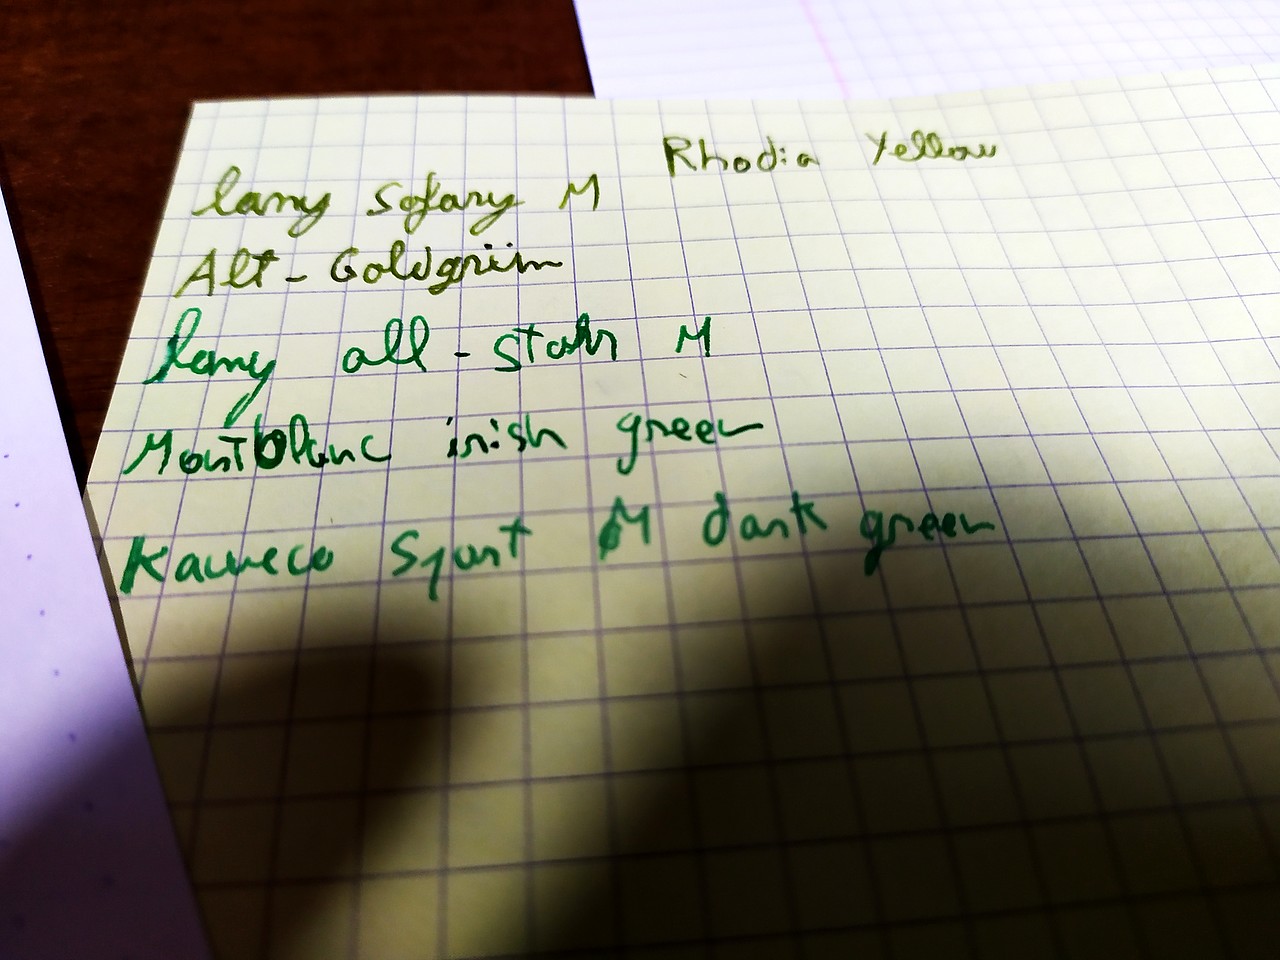 Rhodia Yellow
lamy Safary M
Alt-Goldgrün
lamy all-star M
Montblanc irish green
Kaweco Sport M dark green